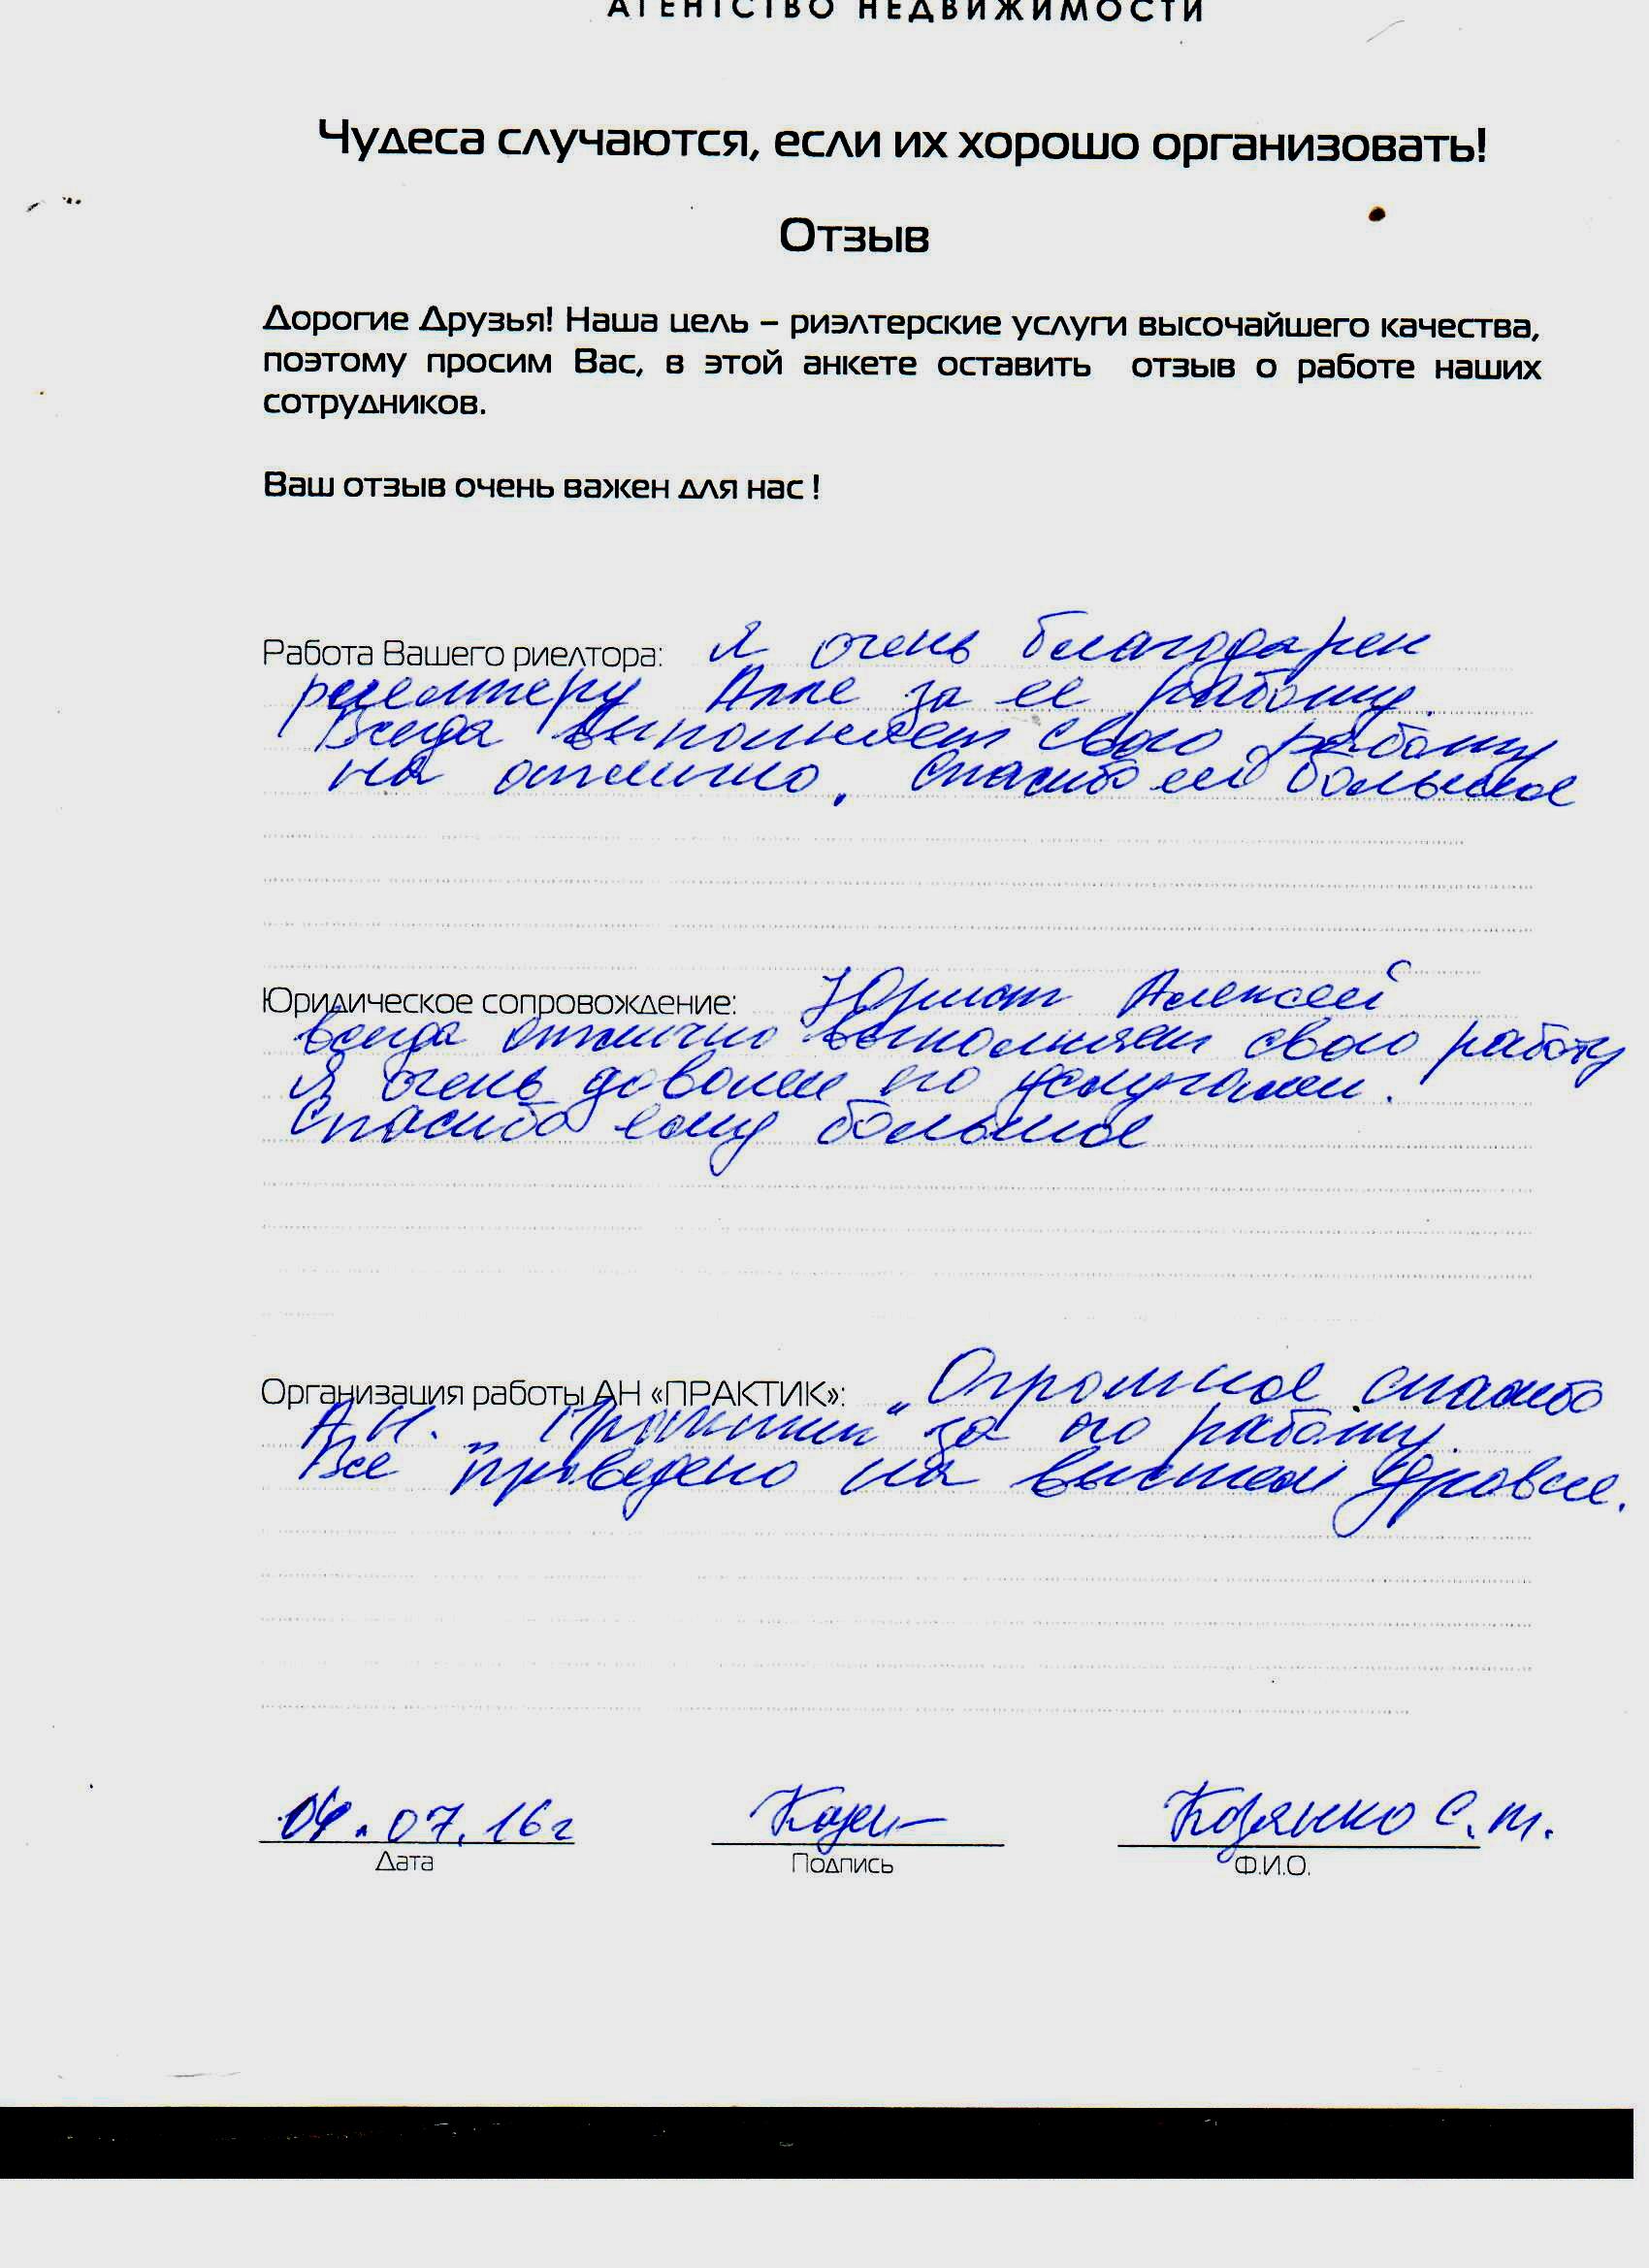 АГЕНТСТВО НЕДВИЖИМОСТИ
Чудеса случаются, если их хорошо организовать!
Отзыв
Дорогие Друзья! Наша цель – риэлтерские услуги высочайшего качества,
поэтому просим Вас, в этой анкете оставить отзыв о работе наших
сотрудников.
Ваш отзыв очень важен для нас !
Работа Вашего риелтора: я очень благодарен
Алле за ее работу.
Всегда выполняет свою работу
на отлично. Спасибо ей большое
Юридическое сопровождение: Юрист Алексей
всегда отлично выполняет свою работу
Я очень доволен его услугами.
Спасибо ему большое
Организация работы АН «ПРАКТИК»: Огромное спасибо
А.Н. „Практик“ за его работу.
Все проведено на высшем уровне.
04.07.16г
Козянко С.М.
Дата
Подпись
Ф.И.О.